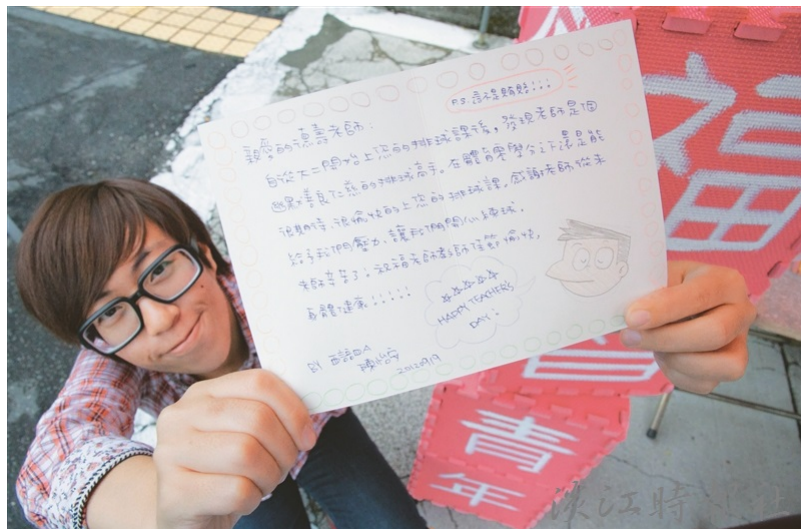 P.S. 這不是賄賂!!!
親愛的德壽老師:
自從大二開始上您的排球課後,發現老師是個
幽默善良仁慈的排球高手。在體育零學分之下還是能
很期待、很愉快的上您的排球課,感謝老師從未
給予我們壓力,讓我們開心練球。
老師辛苦了!祝福老師教師佳節愉快,
身體健康!!!!!
☆☆☆☆☆
HAPPY TEACHER'S
DAY!
BY 西語
2012.09.19
福
青
年
淡江時